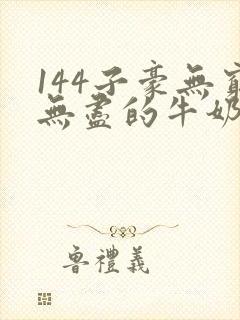 144子豪無窮
無盡的牛奶
魯禮義